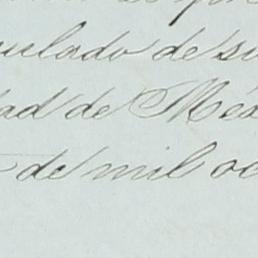 ulado de su
dad de Méx
de mil oc